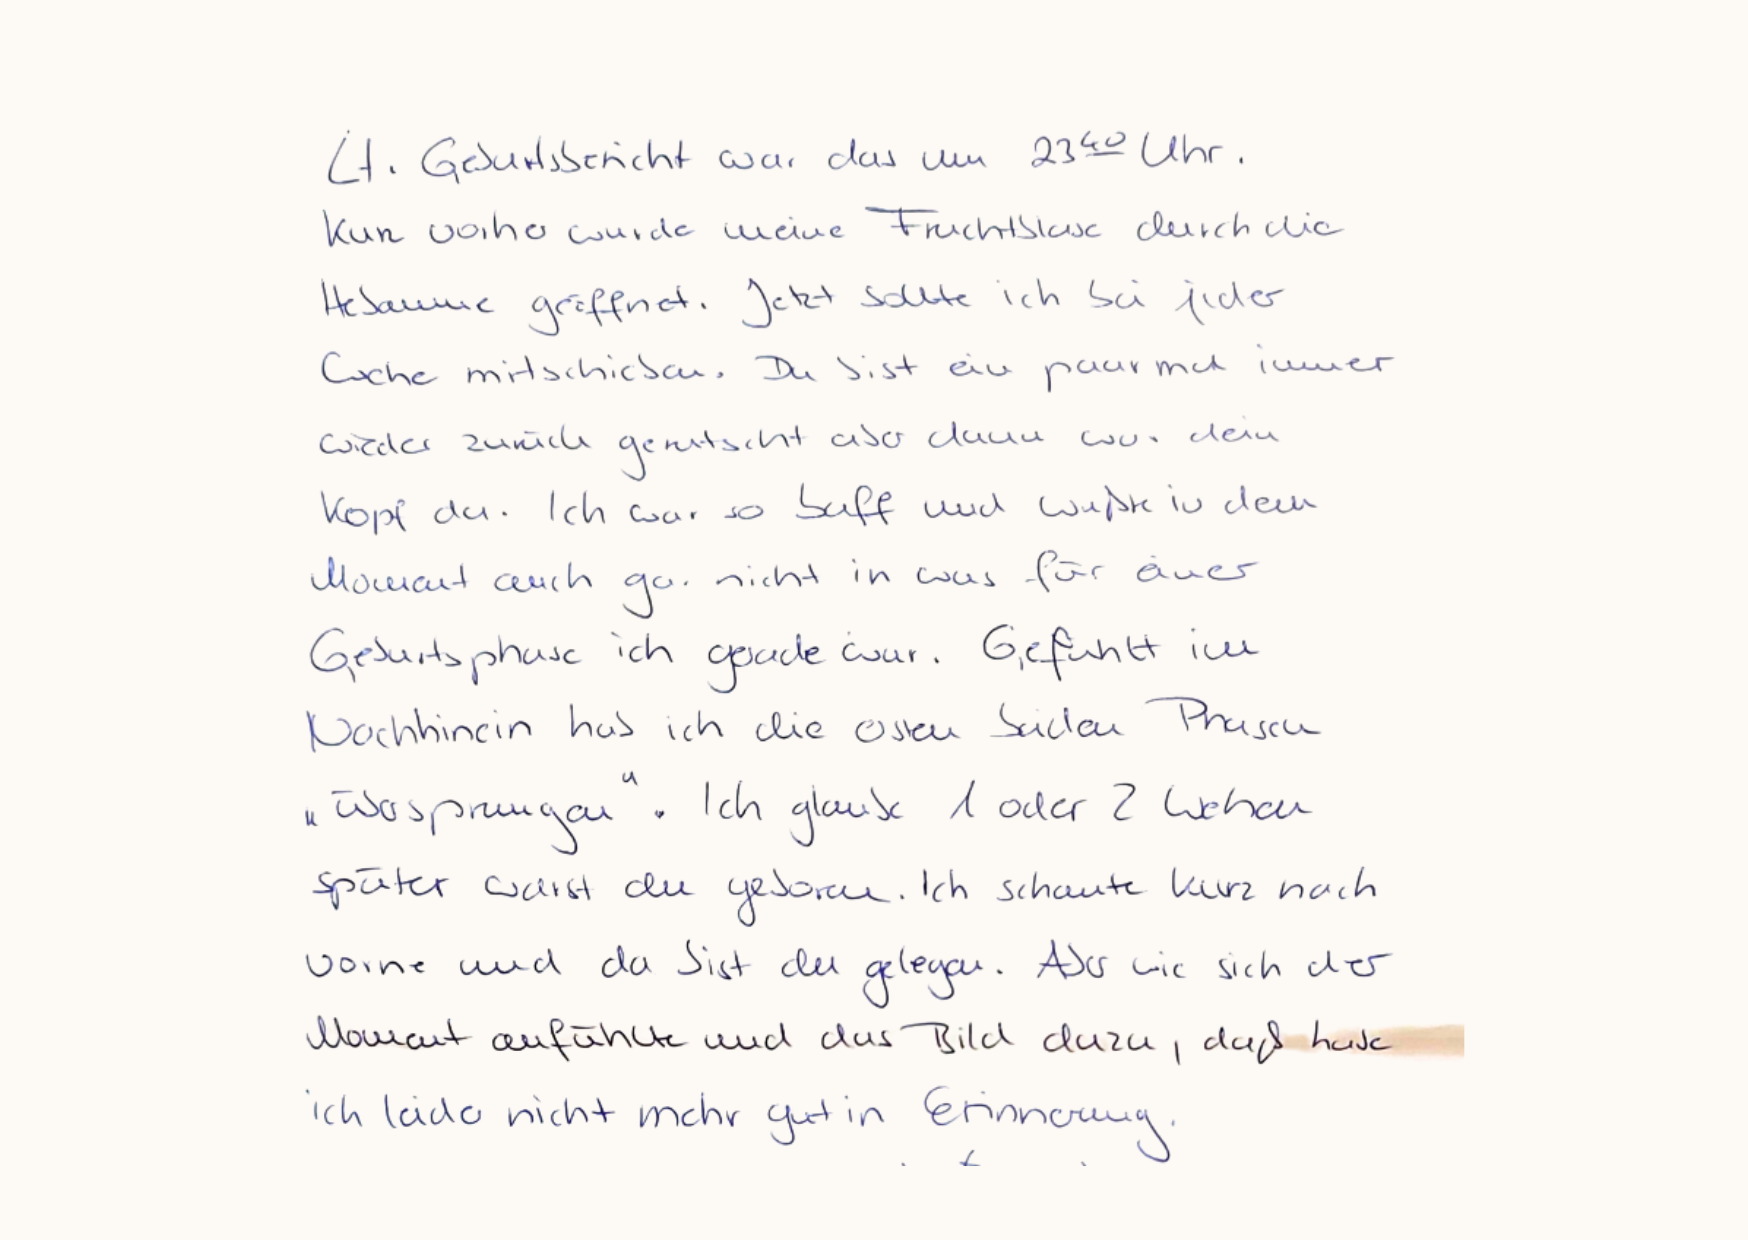 Lt. Geburtsbericht war das um 23⁴⁰ Uhr.
Kurz vorher wurde meine Fruchtblase durch die
Hebamme geöffnet. Jetzt sollte ich bei jeder
Wehe mitschieben. Du bist ein paar mal immer
wieder zurück gerutscht aber dann war dein
Kopf da. Ich war so baff und wußte in dem
Moment auch gar nicht in was für einer
Geburtsphase ich gerade war. Gefühlt im
Nachhinein hab ich die ersten beiden Phasen
„übersprungen“. Ich glaube 1 oder 2 Wehen
später warst du geboren. Ich schaute kurz nach
vorne und da bist du gelegen. Aber wie sich der
Moment anfühlte und das Bild dazu, daß habe
ich leider nicht mehr gut in Erinnerung.